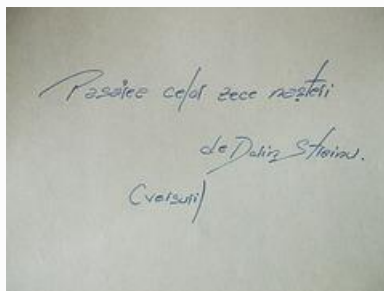 Pasărea celor zece nașteri
de Dorin Streinu.
(versuri)